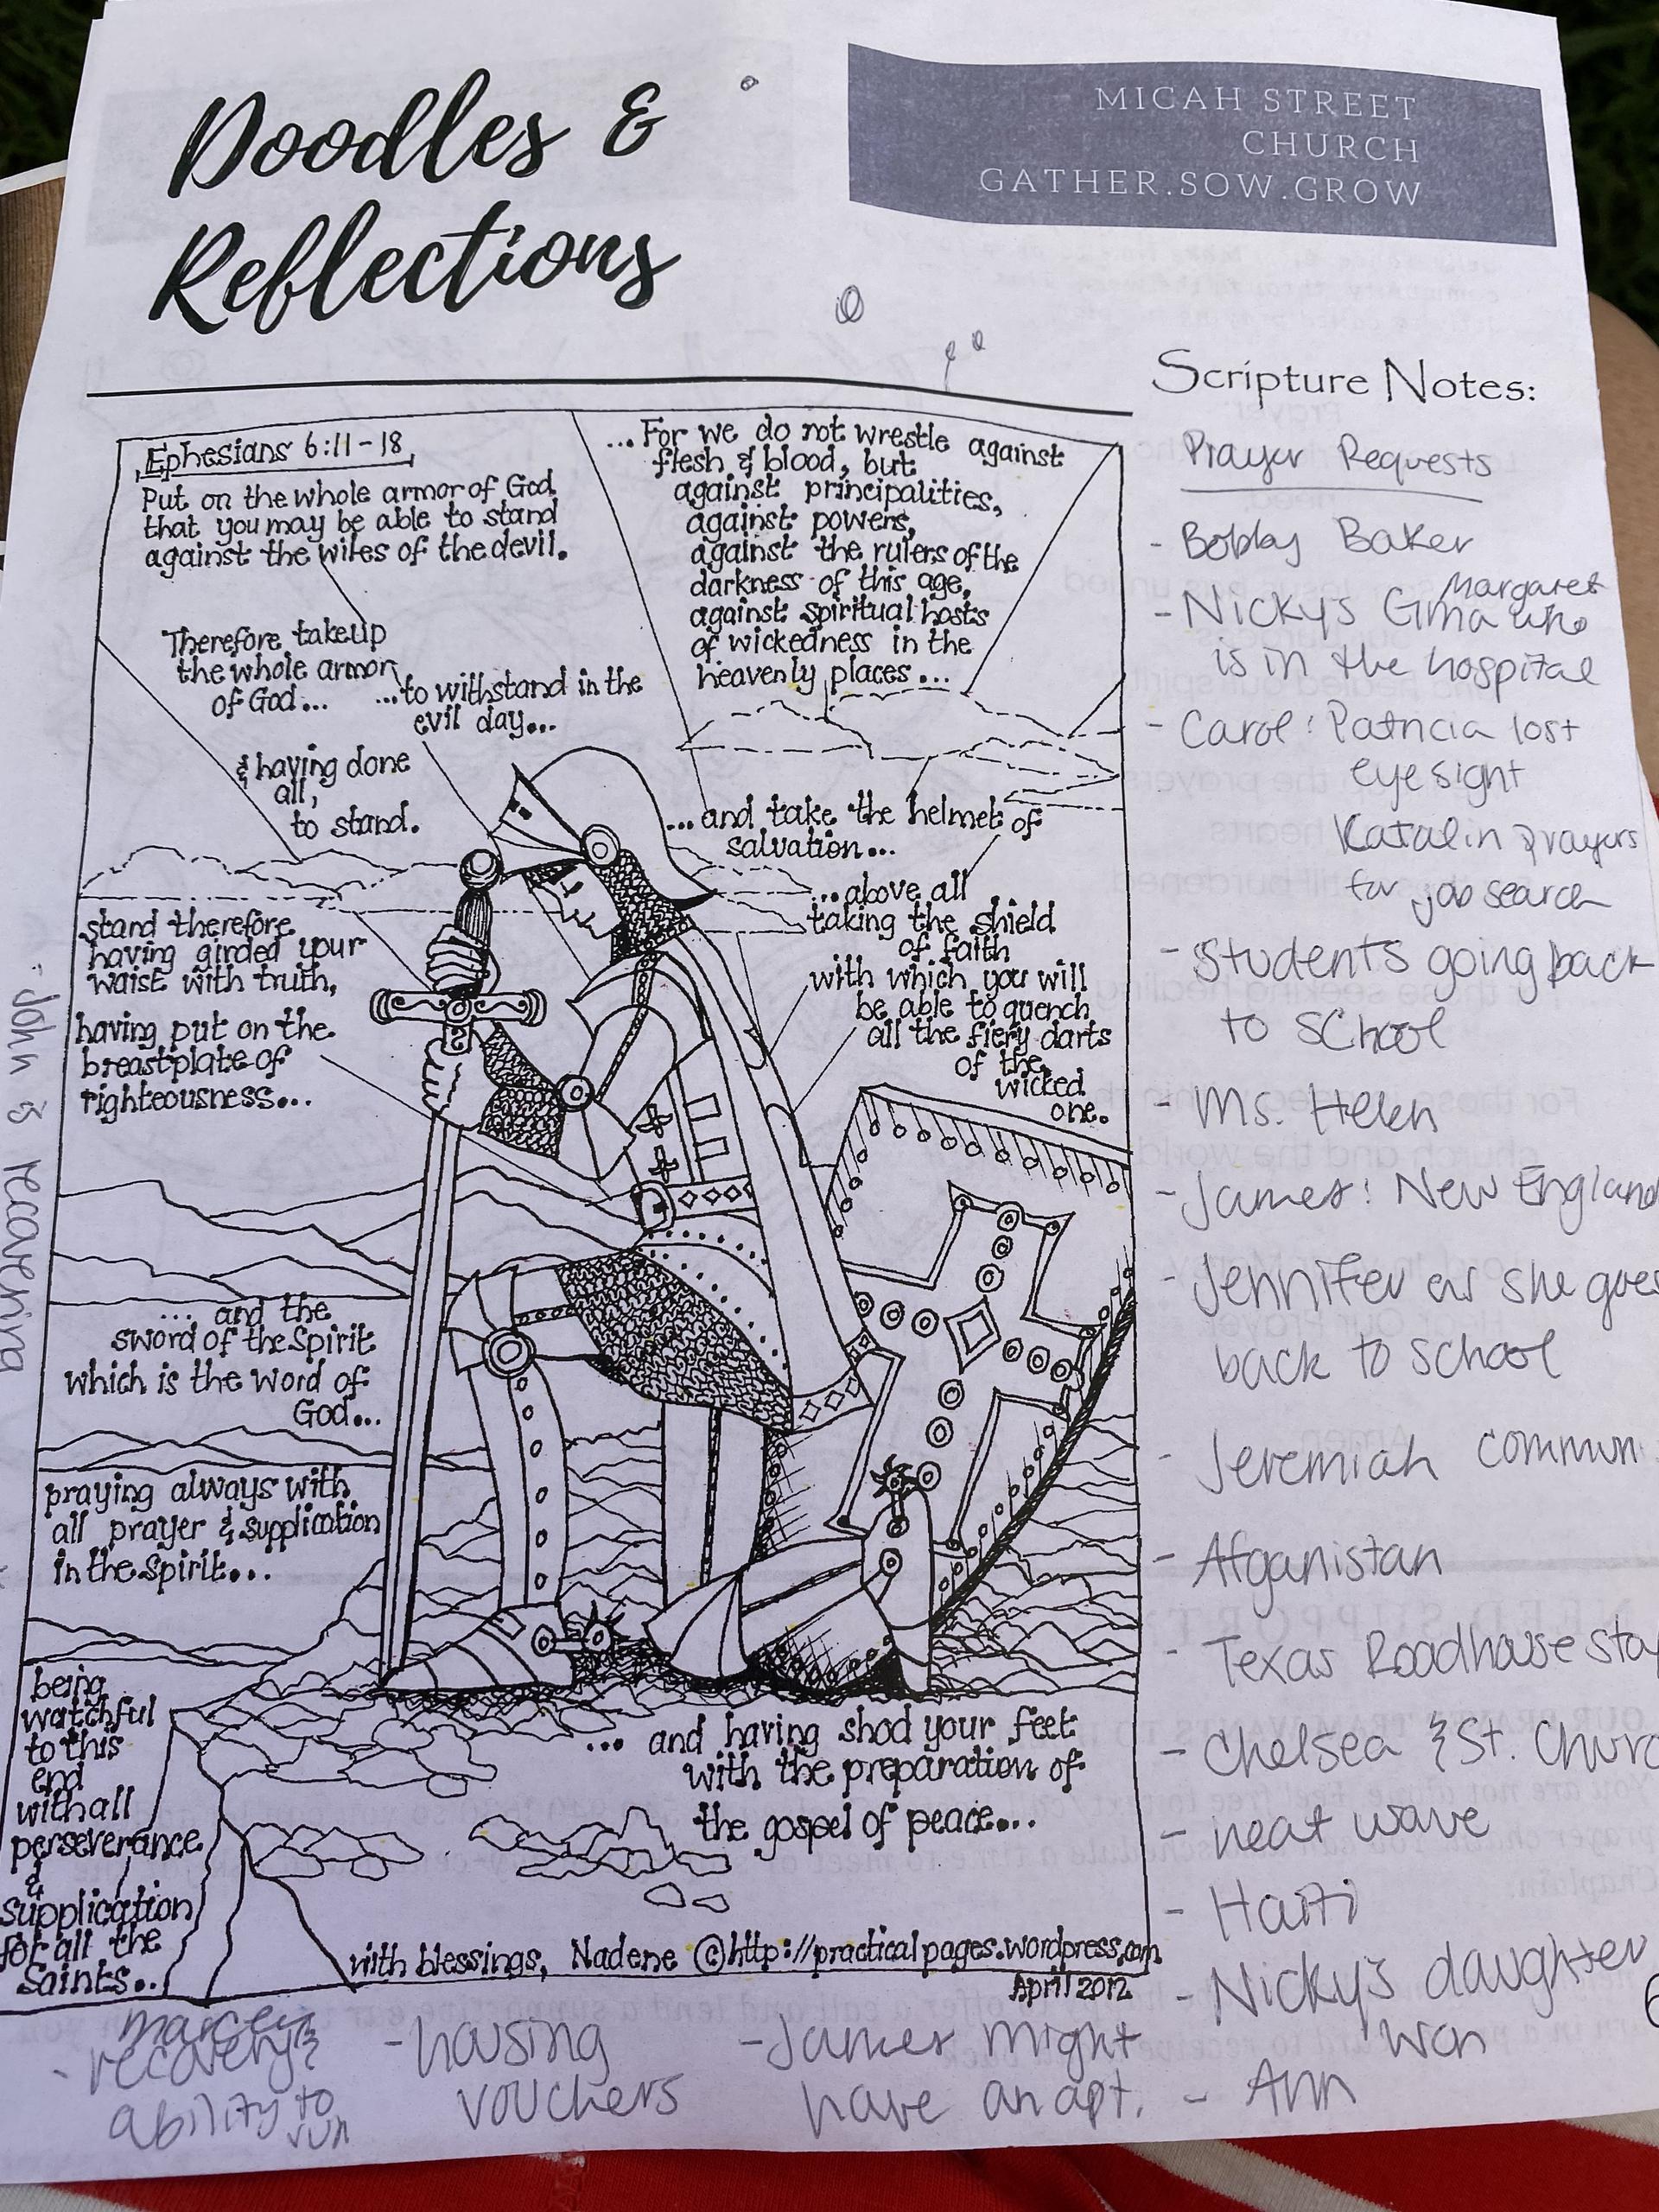 Doodles &
Reflections
MICAH STREET
CHURCH
GATHER.SOW.GROW
Ephesians 6:11-18
Put on the whole armor of God
that you may be able to stand
against the wiles of the devil.
Therefore take up
the whole armor
of God...
...to withstand in the
evil day...
& having done
all,
to stand.
...For we do not wrestle against
flesh & blood, but
against principalities,
against powers,
against the rulers of the
darkness of this age,
against spiritual hosts
of wickedness in the
heavenly places...
...and take the helmet of
salvation...
...above all
taking the shield
of faith
with which you will
be able to quench
all the fiery darts
of the
wicked
one.
stand therefore
having girded your
waist with truth,
having put on the
breastplate of
righteousness...
... and the
sword of the Spirit
which is the word of
God...
praying always with
all prayer & supplication
in the Spirit...
being
watchful
to this
end
with all
perseverance
&
supplication
for all the
Saints...
... and having shod your feet
with the preparation of
the gospel of peace...
with blessings, Nadene ©http://practicalpages.wordpress.com
April 2012
Scripture Notes:
Prayer Requests
- Bobby Baker
Margaret
- Nicky's Gma who
is in the hospital
- Carol: Patricia lost
eye sight
Katalin prayers
for job search
- Students going back
to school
- Ms. Helen
- James: New England
- Jennifer as she goes
back to school
- Jeremiah commun
- Afganistan
- Texas Roadhouse
- Chelsea & St.
- heat wave
- Haiti
- Nicky's daughter
won
- Ann
- John's recovering
recovery &
ability to
run
- housing
vouchers
- James might
have an apt.